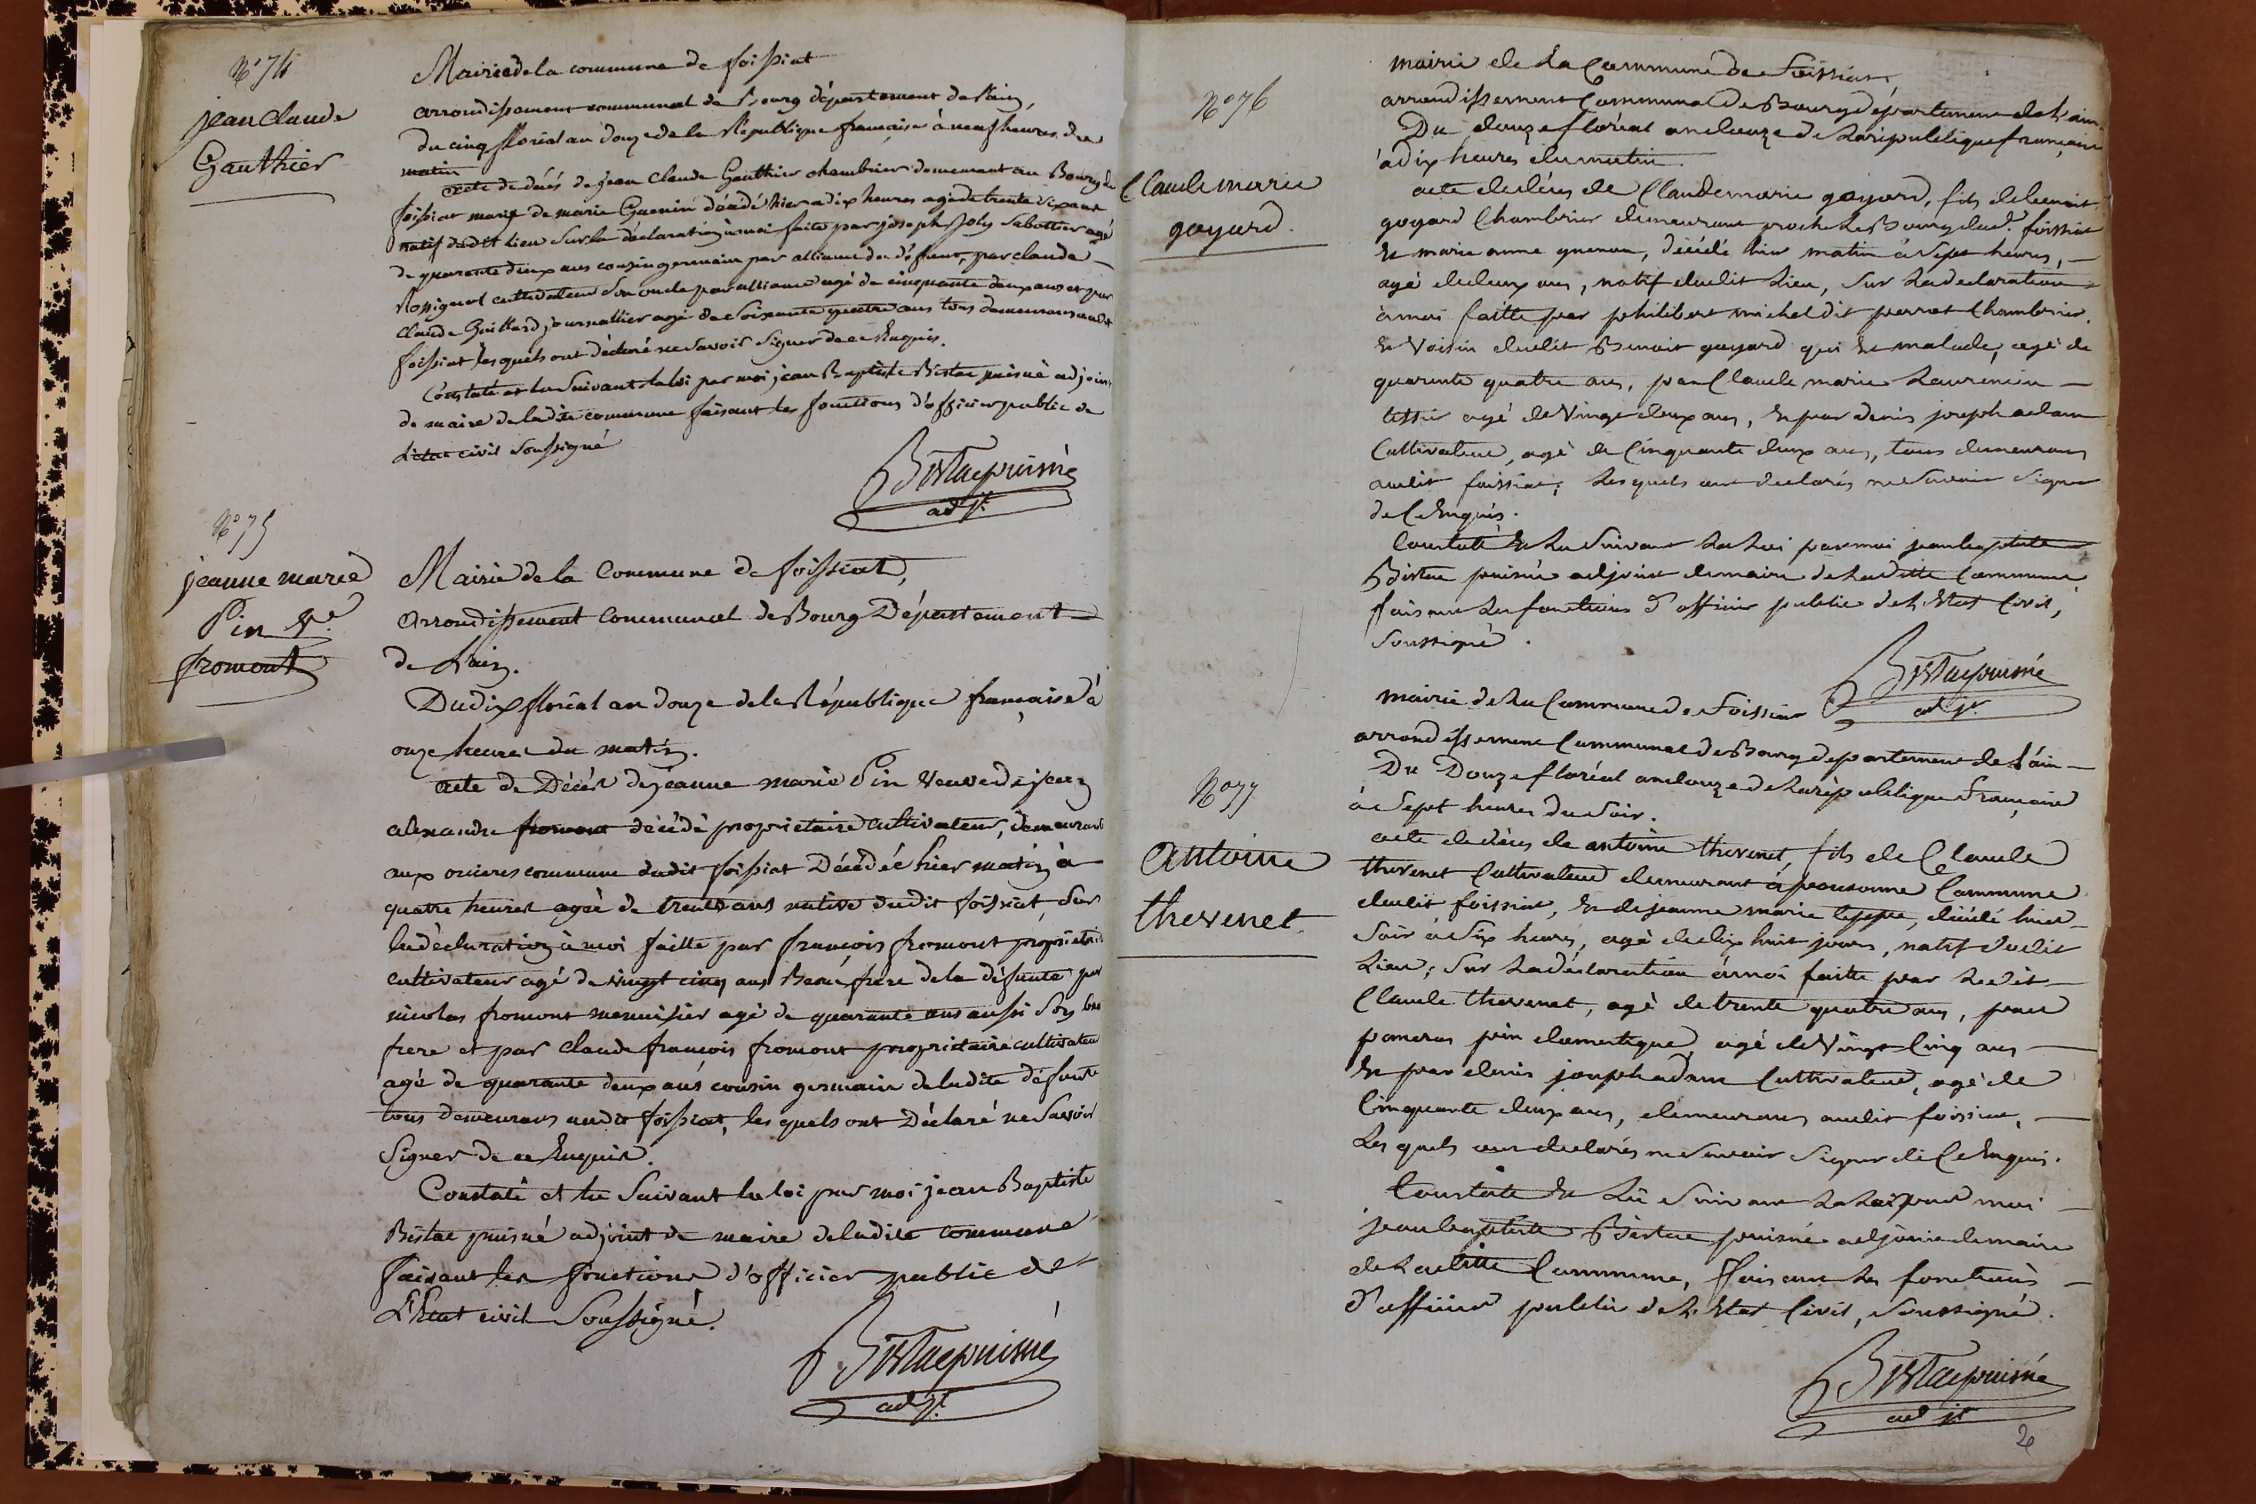 N° 74
jean Claude
Gauthier
Mairie de la commune de foissiat
arrondissement communal de Bourg département de l'ain,
du cinq floréal an douze de la République française à neuf heures du
matin
acte de décès de jean Claude Gauthier chambrier demeurant au Bourg de
foissiat mari de marie Guenin décédé hier a dix heures agé de trente six ans
natif dudit lieu sur la déclaration à moi faite par joseph joly sabottier agé
de quarante deux ans cousin germain par alliance du défunt, par claude
Rossignol cultivateur son oncle par alliance agé de cinquante deux ans et par
claude Guillard journallier agé de soixante quatre ans tous demeurans audit
foissiat les quels ont déclaré ne savoir signer de ce Enquis.
Constaté et lu suivant la loi par moi jean Baptiste Bistac puisné adjoint
de maire de ladite commune faisant les fonctions d'officier public de
L'état civil soussigné
Bistac puisné
adjt.
N° 75
jeanne marie
Pin Ve.
fromont
Mairie de la Commune de foissiat,
arrondissement communal de Bourg Département
de L'ain.
Du dix floréal an douze de la République française à
onze heures du matin.
acte de Décès de jeanne marie Pin veuve de jean
alexandre fromont décédé proprietaire cultivateur, demeurant
aux commune dudit foissiat Décédée hier matin à
quatre heures agée de trente ans native dudit foissiat, sur
la déclaration à moi faitte par françois fromont proprietaire
cultivateur agé de vingt cinq ans Beau frere de la défunte par
nicolas fromont menuisier agé de quarante ans aussi son beau
frere et par claude françois fromont proprietaire cultivateur
agé de quarante deux ans cousin germain de ladite défunte
tous demeurans audit foissiat, les quels ont Déclaré ne savoir
signer de ce Enquis.
Constaté et lu suivant la loi par moi jean Baptiste
Bistac puisné adjoint de maire de ladite commune
faisant les fonctions d'officier public de
L'Etat civil soussigné.
Bistac puisné
adjt.
N° 76
Claude marie
goyard.
mairie de la Commune de Foissiat
arrondissement Communal de Bourg département de l'ain
Du douze floréal an douze de la république française
à dix heures du matin.
acte de décès de Claude marie goyard, fils de benoit
goyard Chambrier demeurant proche le Bourg dudt. foissiat
Et marie anne guenon, décédé hier matin à sept heures,
agé de deux ans, natif dudit Lieu, sur la déclaration
à moi faitte par philibert michel dit perret chambrier
Et voisin dudit Benoit goyard qui Est malade, agé de
quarante quatre ans, par Claude marie Laurencin
tissier agé de vingt deux ans, Et par denis joseph adam
Cultivateur, agé de Cinquante deux ans, tous demeurans
audit foissiat; Les quels ont declarés ne savoir signer
de Ce Enquis.
Constaté Et Lu suivant La Loi par moi jean baptiste
Bistac puisné adjoint de maire de La ditte Commune
faisant Les fonctions d'officier public de L'Etat Civil,
soussigné.
Bistac puisné
adjt.
N° 77
Antoine
thevenet
mairie de La Commune de Foissiat
arrondissement Communal de Bourg departement de L'ain
Du Douze floréal an douze de La république Française
à sept heures du soir.
acte de décès de antoine thevenet, fils de Claude
thevenet Cultivateur demeurant à Commune
dudit foissiat, Et de jeanne marie teppe, décédé hier
soir à six heures, agé de dix huit jours, natif dudit
Lieu; sur La déclaration à moi faitte par Ledit
Claude thevenet, agé de trente quatre ans, par
pin domestique, agé de vingt Cinq ans
Et par denis joseph adam Cultivateur, agé de
Cinquante deux ans, demeurans audit foissiat,
Les quels ont declarés ne savoir signer de Ce Enquis.
Constaté Et Lu suivant La Loi par moi
jean baptiste Bistac puisné adjoint de maire
de La ditte Commune, faisant Les fonctions
d'officier public de L'Etat Civil, soussigné.
Bistac puisné
adjt